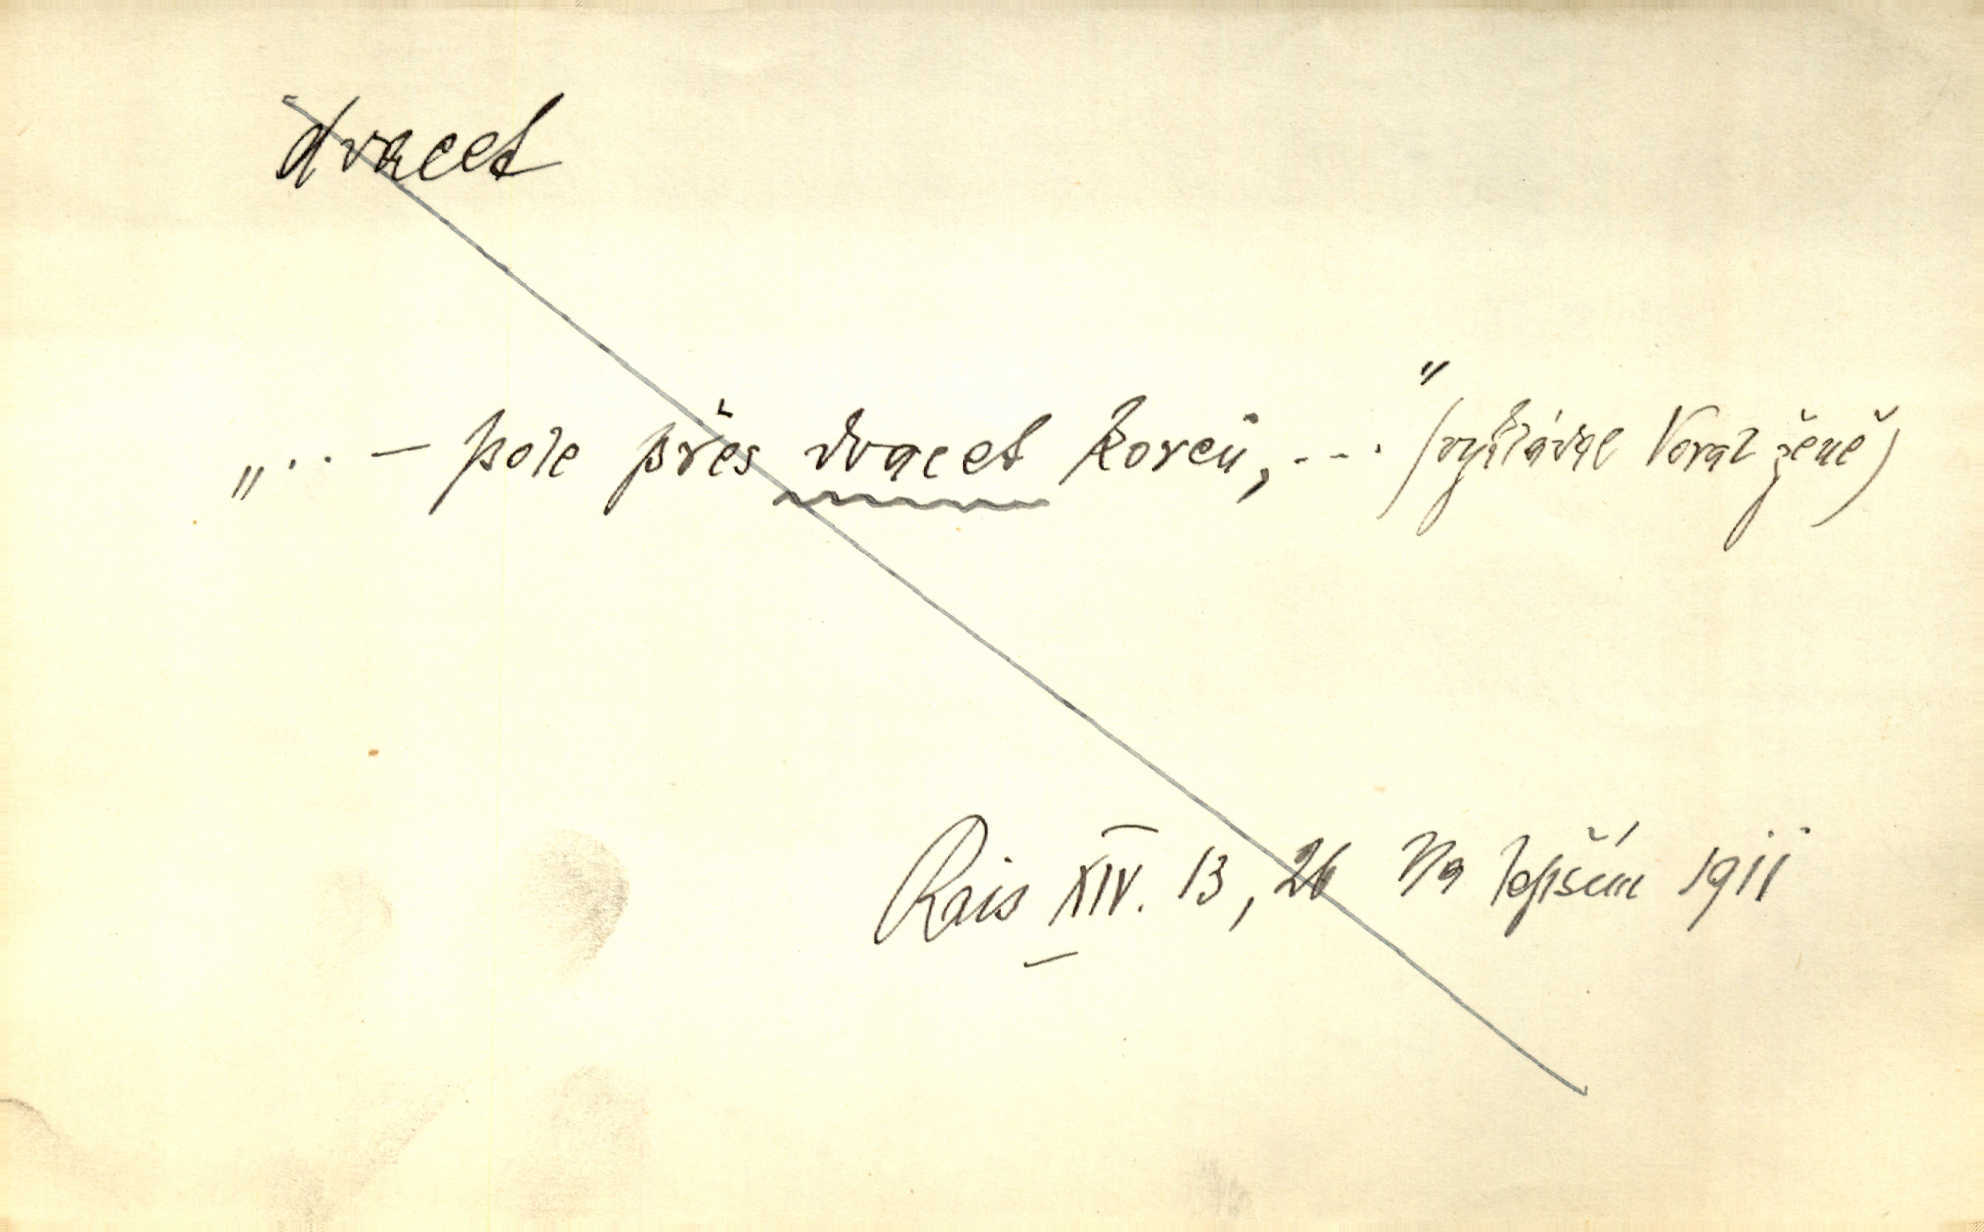 dvacet
„.. — pole přes dvacet korců, ...." (vykládal Voral ženě)
Rais XIV. 13, 26 Na lepším 1911